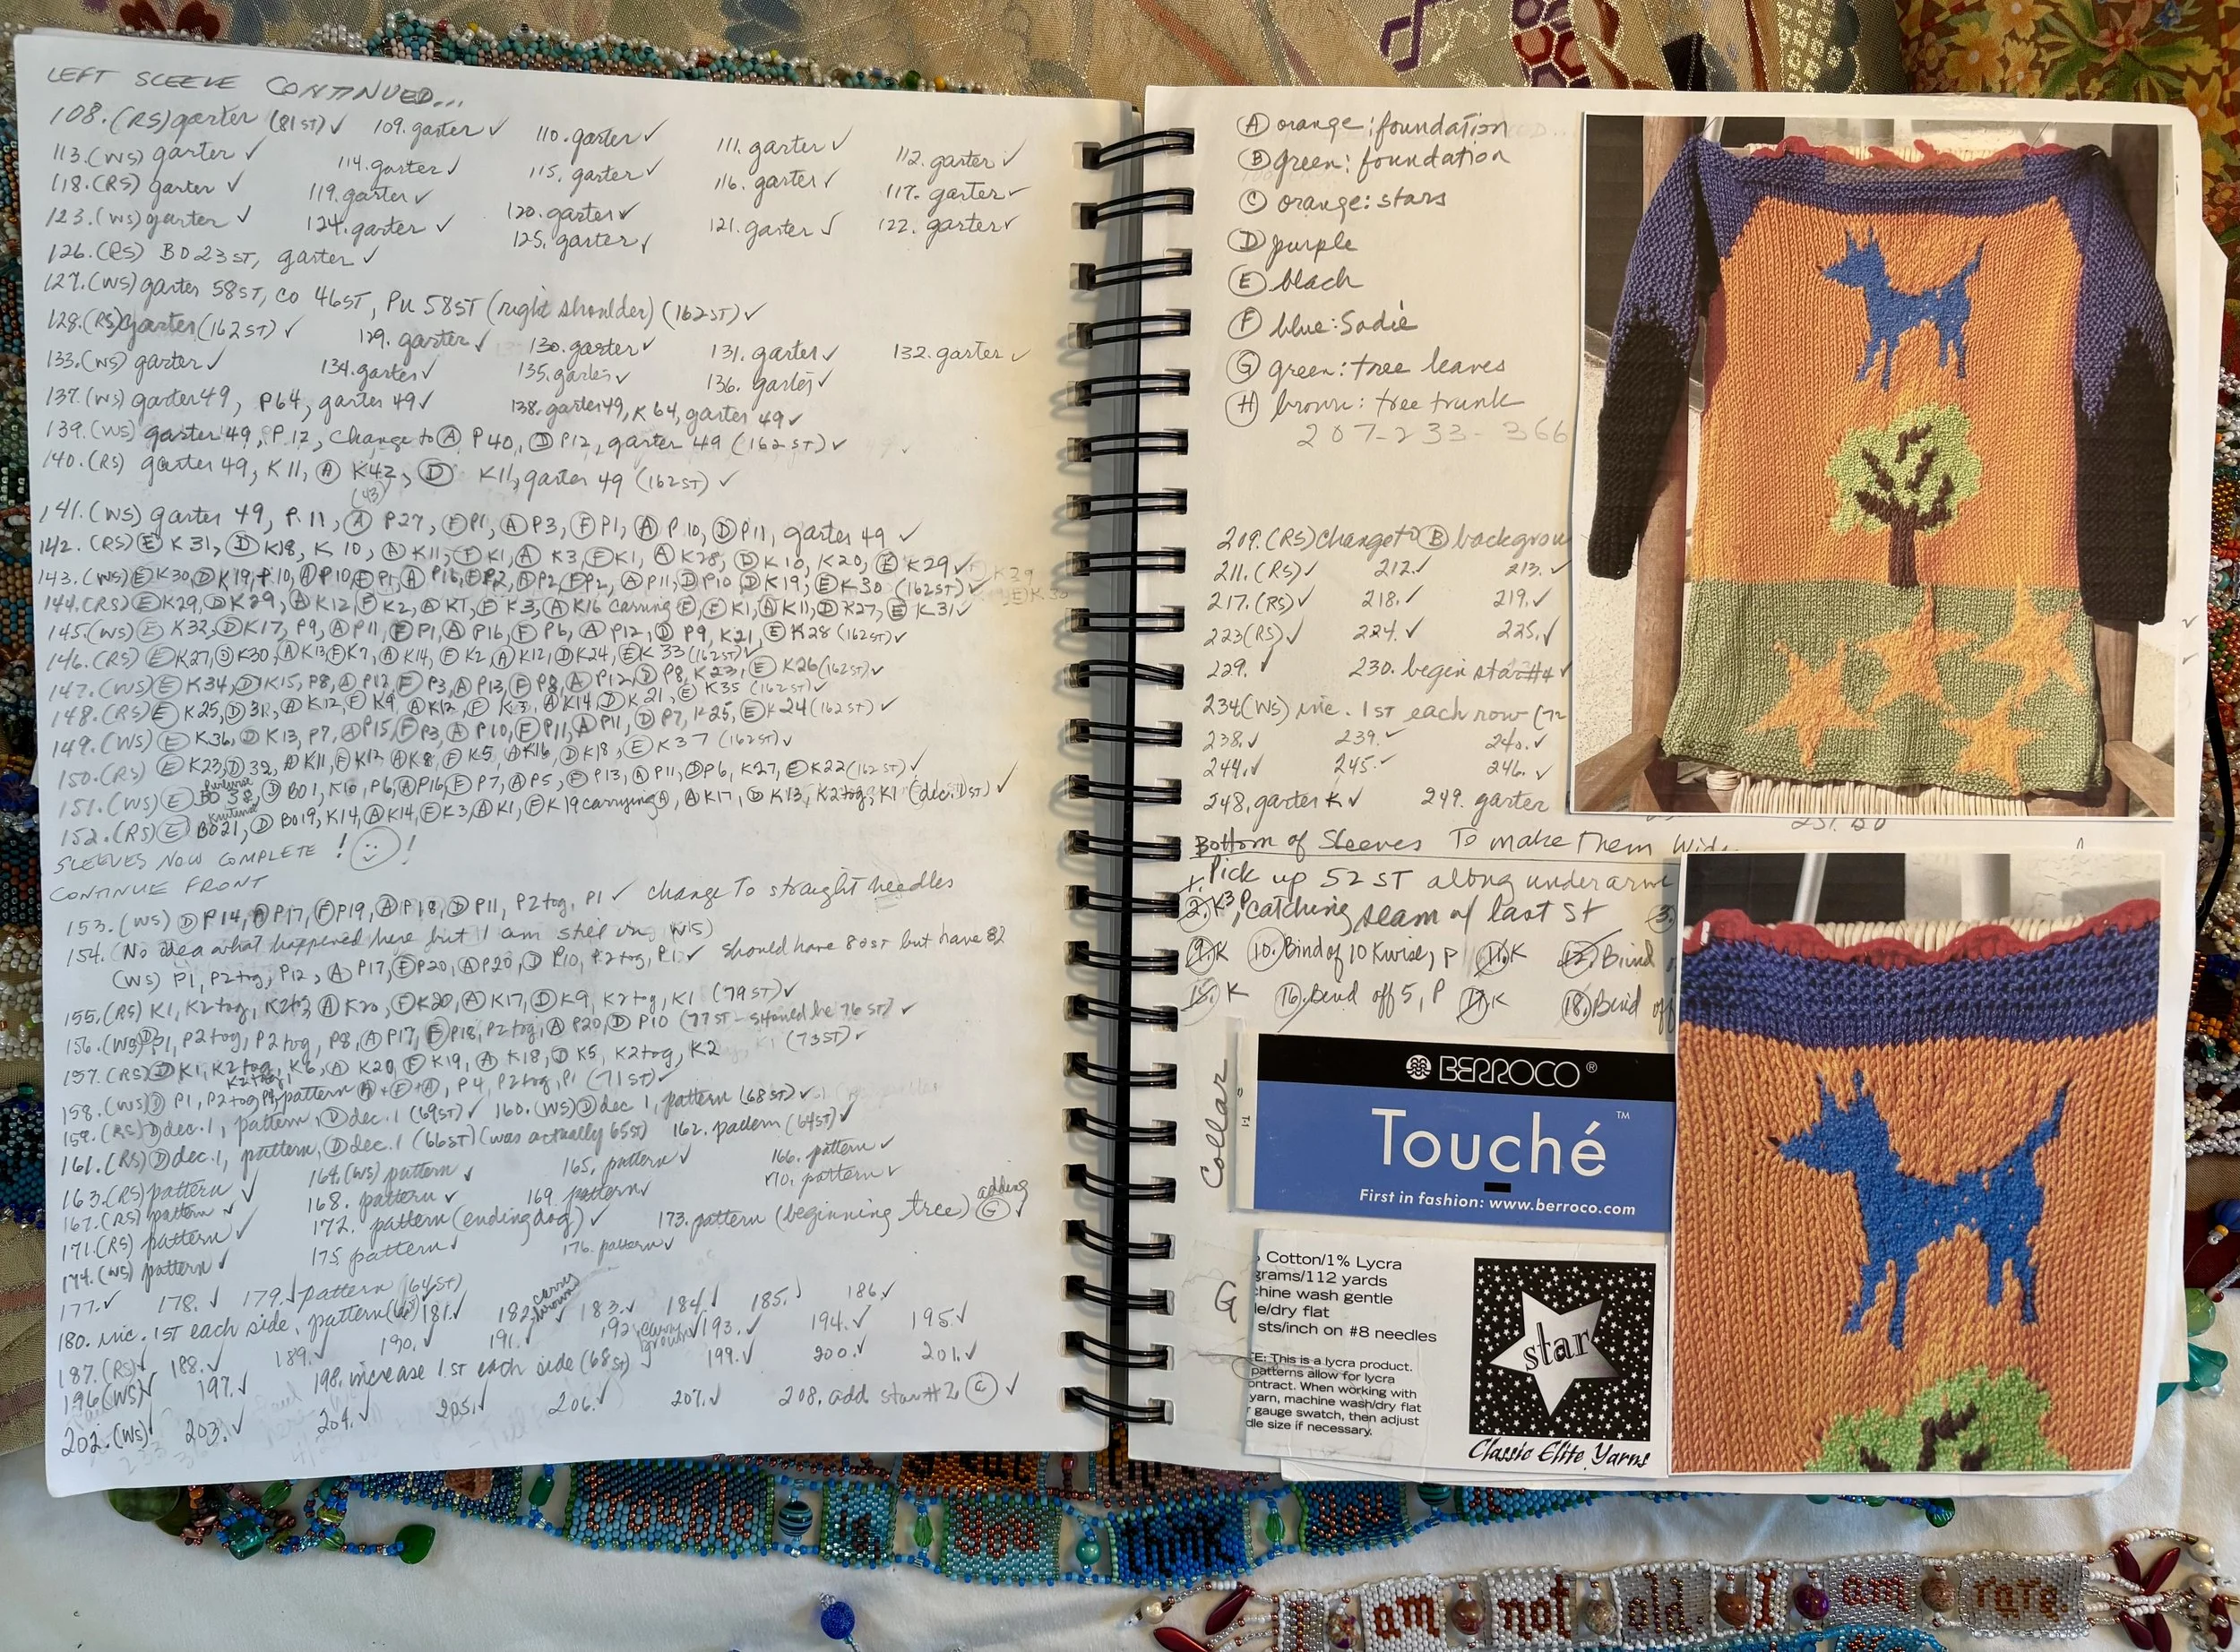 LEFT SLEEVE CONTINUED...
108. (RS) garter (81ST) ✓ 109. garter ✓ 110. garter ✓ 111. garter ✓ 112. garter ✓
113. (WS) garter ✓ 114. garter ✓ 115. garter ✓ 116. garter ✓ 117. garter ✓
118. (RS) garter ✓ 119. garter ✓ 120. garter ✓ 121. garter ✓ 122. garter ✓
123. (WS) garter ✓ 124. garter ✓ 125. garter ✓
126. (RS) BO 23 ST, garter ✓
127. (WS) garter 58ST, CO 46ST, PU 58ST (right shoulder) (162ST) ✓
128. (RS) garter (162ST) ✓ 129. garter ✓ 130. garter ✓ 131. garter ✓ 132. garter ✓
133. (WS) garter ✓ 134. garter ✓ 135. garter ✓ 136. garter ✓
137. (WS) garter 49, P64, garter 49 ✓ 138. garter 49, K64, garter 49 ✓
139. (WS) garter 49, P12, change to Ⓐ P40, Ⓓ P12, garter 49 (162ST) ✓
140. (RS) garter 49, K11, Ⓐ K42, Ⓓ K11, garter 49 (162ST) ✓
(43)
141. (WS) garter 49, P11, Ⓐ P27, Ⓕ P1, Ⓐ P3, Ⓕ P1, Ⓐ P10, Ⓓ P11, garter 49 ✓
142. (RS) Ⓔ K31, Ⓓ K18, K10, Ⓐ K11, Ⓕ K1, Ⓐ K3, Ⓕ K1, Ⓐ K28, Ⓓ K10, K20, Ⓔ K29 ✓
143. (WS) Ⓔ K30, Ⓓ K19, P10, Ⓐ P10, Ⓕ P1, Ⓐ P16, Ⓕ P2, Ⓐ P2, Ⓕ P2, Ⓐ P11, Ⓓ P10 Ⓓ K19, Ⓔ K30 (162ST) ✓
144. (RS) Ⓔ K29, Ⓓ K29, Ⓐ K12, Ⓕ K2, Ⓐ K1, Ⓕ K3, Ⓐ K16 carrying Ⓕ, Ⓕ K1, Ⓐ K11, Ⓓ K27, Ⓔ K31 ✓
145. (WS) Ⓔ K32, Ⓓ K17, P9, Ⓐ P11, Ⓕ P1, Ⓐ P16, Ⓕ P6, Ⓐ P12, Ⓓ P9, K21, Ⓔ K28 (162ST) ✓
146. (RS) Ⓔ K27, Ⓓ K30, Ⓐ K13 Ⓕ K7, Ⓐ K14, Ⓕ K2, Ⓐ K12, Ⓓ K24, Ⓔ K33 (162ST) ✓
147. (WS) Ⓔ K34, Ⓓ K15, P8, Ⓐ P12 Ⓕ P3, Ⓐ P13, Ⓕ P8, Ⓐ P12, Ⓓ P8, K23, Ⓔ K26 (162ST) ✓
148. (RS) Ⓔ K25, Ⓓ 31, Ⓐ K12, Ⓕ K9, Ⓐ K12, Ⓕ K3, Ⓐ K14, Ⓓ K21, Ⓔ K35 (162ST) ✓
149. (WS) Ⓔ K36, Ⓓ K13, P7, Ⓐ P15, Ⓕ P3, Ⓐ P10, Ⓕ P11, Ⓐ P11, Ⓓ P7, K25, Ⓔ K24 (162ST) ✓
150. (RS) Ⓔ K23, Ⓓ 32, Ⓐ K11, Ⓕ K13 Ⓐ K8, Ⓕ K5, Ⓐ K16, Ⓓ K18, Ⓔ K37 (162ST) ✓
151. (WS) Ⓔ BO 38, Ⓓ BO1, K10, P6, Ⓐ P16, Ⓕ P7, Ⓐ P5, Ⓕ P13, Ⓐ P11, Ⓓ P6, K27, Ⓔ K22 (162ST) ✓
152. (RS) Ⓔ BO21, Ⓓ BO19, K14, Ⓐ K14, Ⓕ K3, Ⓐ K1, Ⓕ K19 carrying Ⓐ, Ⓐ K17, Ⓓ K13, K2tog, K1 (dec. 1st) ✓
SLEEVES NOW COMPLETE ! !
CONTINUE FRONT
153. (WS) Ⓓ P14, Ⓐ P17, Ⓕ P19, Ⓐ P18, Ⓓ P11, P2tog, P1 ✓ change To straight needles
154. (No idea what happened here but I am still on WS)
(WS) P1, P2tog, P12, Ⓐ P17, Ⓕ P20, Ⓐ P20, Ⓓ P10, P2tog, P1 ✓ should have 80ST but have 82
155. (RS) K1, K2tog, K2tog Ⓐ K20, Ⓕ K20, Ⓐ K17, Ⓓ K9, K2tog, K1 (79ST) ✓
156. (WS) Ⓓ P1, P2tog, P2tog, P8, Ⓐ P17, Ⓕ P18, P2tog, Ⓐ P20, Ⓓ P10 (77ST - should be 76ST) ✓
157. (RS) Ⓓ K1, K2tog, K6, Ⓐ K20, Ⓕ K19, Ⓐ K18, Ⓓ K5, K2tog, K2 (73ST) ✓
K2tog
158. (WS) Ⓓ P1, P2tog, pattern Ⓐ + Ⓕ + Ⓐ, P4, P2tog, P1 (71ST) ✓
159. (RS) Ⓓ dec. 1, pattern, Ⓓ dec. 1 (69ST) ✓ 160. (WS) Ⓓ dec 1, pattern (68ST) ✓
161. (RS) Ⓓ dec. 1, pattern, Ⓓ dec. 1 (66ST) (was actually 65ST) 162. pattern (64ST) ✓
163. (RS) pattern ✓ 164. (WS) pattern ✓ 165. pattern ✓ 166. pattern ✓
167. (RS) pattern ✓ 168. pattern ✓ 169. pattern ✓ 170. pattern ✓
171. (RS) pattern ✓ 172. pattern (ending dog) ✓ 173. pattern (beginning tree) adding Ⓖ ✓
174. (WS) pattern ✓ 175. pattern ✓ 176. pattern ✓
177. ✓ 178. ✓ 179. ✓ pattern (64ST)
180. inc. 1ST each side, pattern 181. ✓ 182. carry brown ✓ 183. ✓ 184. ✓ 185. ✓ 186. ✓
187. (RS) ✓ 188. ✓ 189. ✓ 190. ✓ 191. ✓ 192. carry brown ✓ 193. ✓ 194. ✓ 195. ✓
196. (WS) ✓ 197. ✓ 198. increase 1ST each side (68ST) 199. ✓ 200. ✓ 201. ✓
202. (WS) ✓ 203. ✓ 204. ✓ 205. ✓ 206. ✓ 207. ✓ 208. add star #2 Ⓒ ✓
Ⓐ orange: foundation
Ⓑ green: foundation
Ⓒ orange: stars
Ⓓ purple
Ⓔ black
Ⓕ blue: Sadie
Ⓖ green: tree leaves
Ⓗ brown: tree trunk
207-233-366
209. (RS) change to Ⓑ backgrou
211. (RS) ✓ 212. ✓ 213. ✓
217. (RS) ✓ 218. ✓ 219. ✓
223 (RS) ✓ 224. ✓ 225. ✓
229. ✓ 230. begin star #4 ✓
234 (WS) inc. 1ST each row (72
238. ✓ 239. ✓ 240. ✓
244. ✓ 245. ✓ 246. ✓
248. garter K ✓ 249. garter
251. BO
Bottom of Sleeves To make Them Wid
1. Pick up 52 ST along underarm
2. K3P, catching seam w/ last st 3.
9. K 10. Bind of 10 Kwise, P 11. K 12. Bind
15. K 16. Bind off 5, P 17. K 18. Bind off
Collar
BERROCO®
Touché™
First in fashion: www.berroco.com
G
Cotton/1% Lycra
grams/112 yards
chine wash gentle
le/dry flat
sts/inch on #8 needles
E: This is a lycra product.
patterns allow for lycra
ontract. When working with
yarn, machine wash/dry flat
gauge swatch, then adjust
dle size if necessary.
star
Classic Elite Yarns
trouble is you think you
I am not old. I am rare.